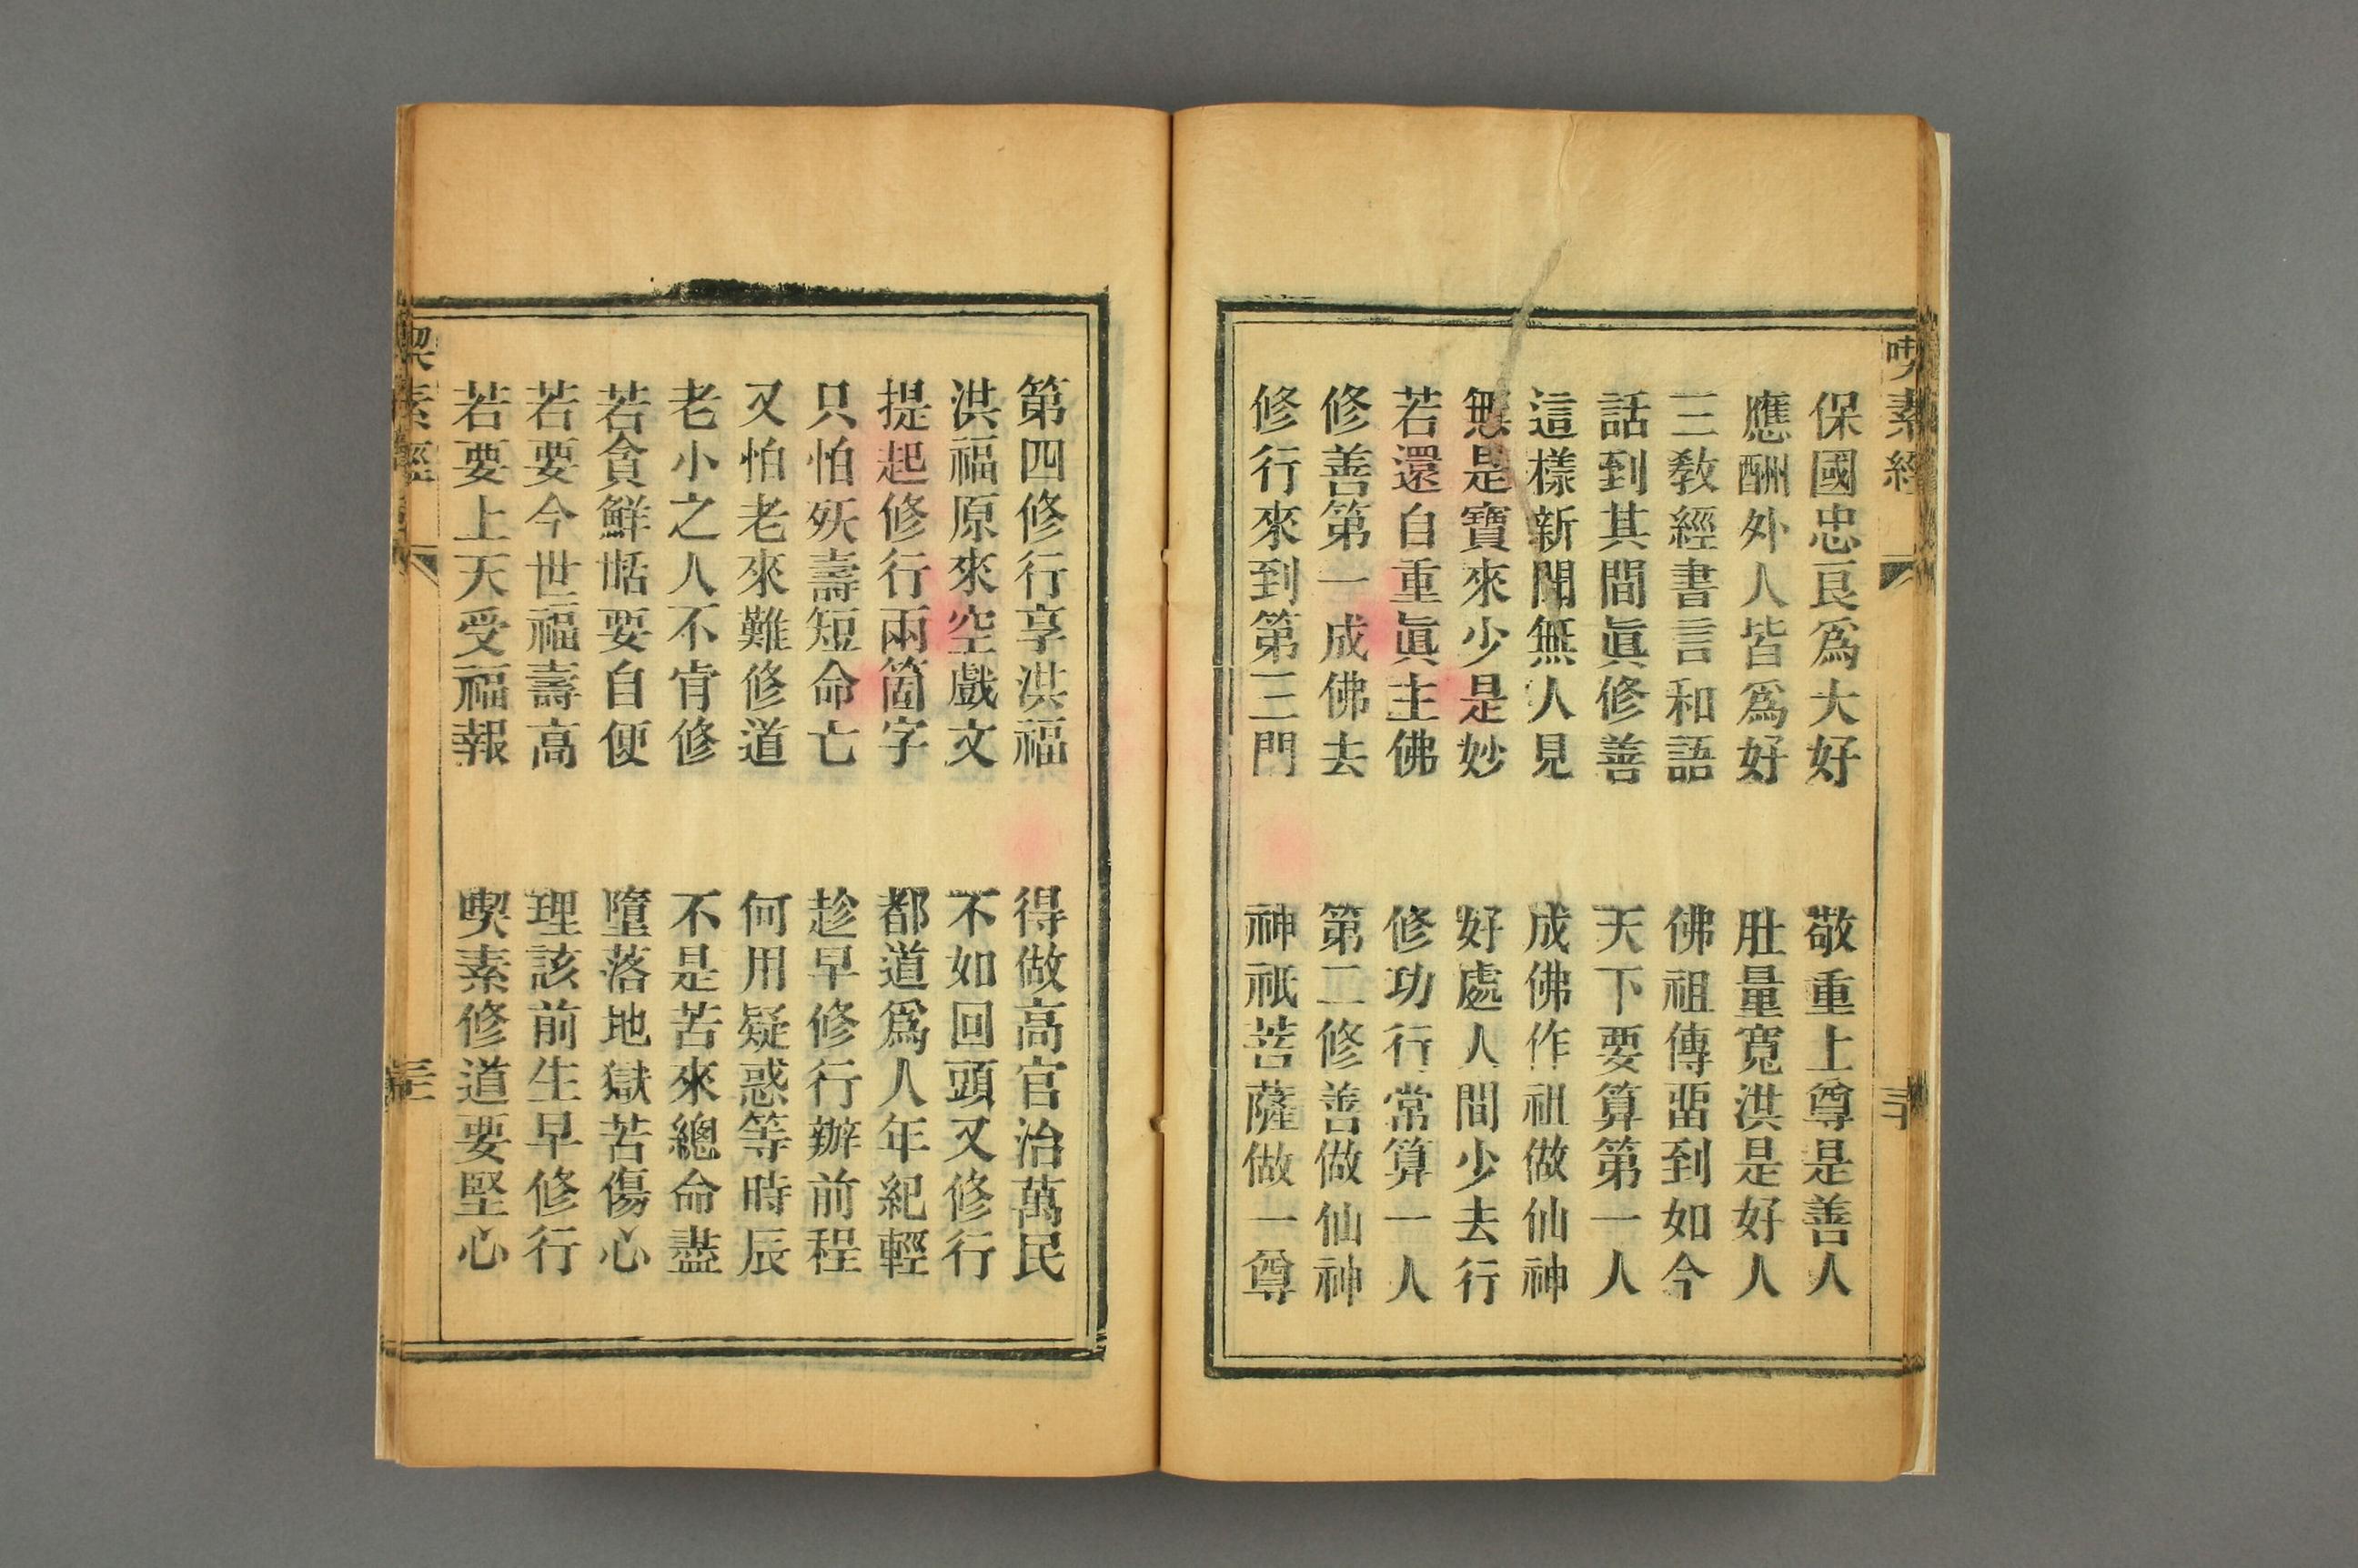 喫素經
三十
保國忠良爲大好　敬重上尊是善人
應酬外人皆爲好　肚量寬洪是好人
三教經書言和語　佛祖傳畱到如今
話到其間眞修善　天下要算第一人
這樣新聞無人見　成佛作祖做仙神
無是寶來少是妙　好處人間少去行
若還自重眞主佛　修功行常算一人
修善第一成佛去　第二修善做仙神
修行來到第三門　神祇菩薩做一尊
第四修行享洪福　得做高官治萬民
洪福原來空戲文　不如回頭又修行
提起修行兩箇字　都道爲人年紀輕
只怕殀壽短命亡　趁早修行辦前程
又怕老來難修道　何用疑惑等時辰
老小之人不肯修　不是苦來總命盡
若貪鮮甛要自便　墮落地獄苦傷心
若要今世福壽高　理該前生早修行
若要上天受福報　喫素修道要堅心
喫素經